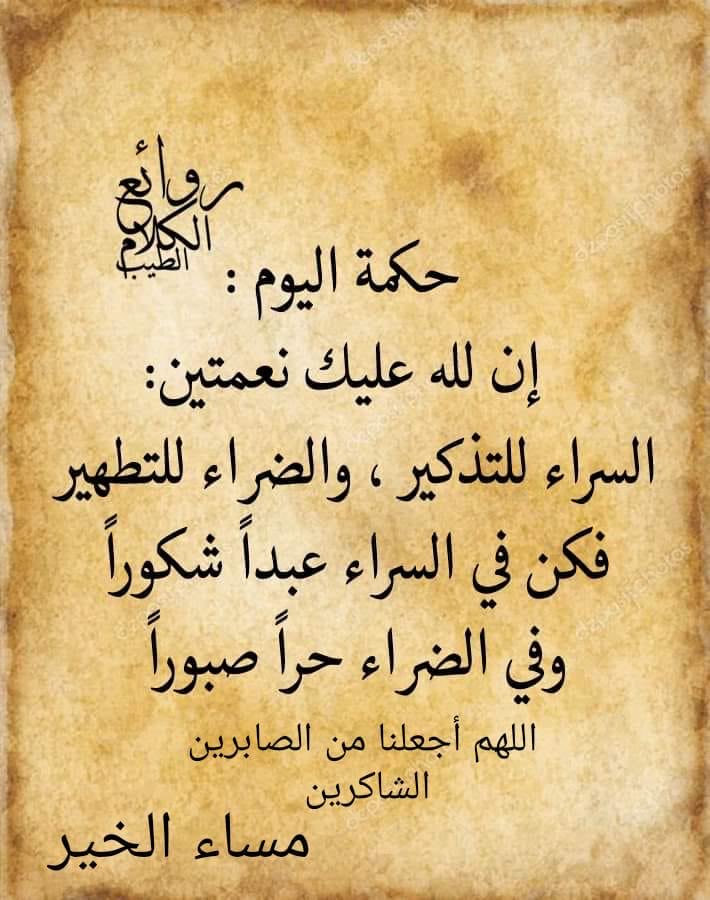 روائع
الكلام
الطيب
حكمة اليوم :
إن لله عليك نعمتين:
السراء للتذكير ، والضراء للتطهير
فكن في السراء عبداً شكوراً
وفي الضراء حراً صبوراً
اللهم أجعلنا من الصابرين
الشاكرين
مساء الخير